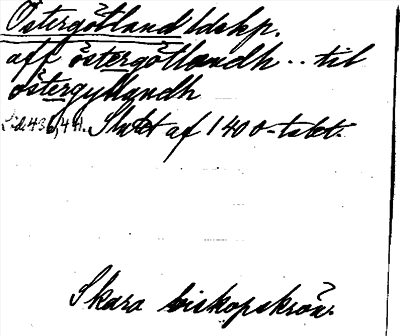 Östergötland ldskp.
aff östergötlandh .. til
östergyllandh
Lit. 436, 4 n. Slutet af 1400-talet.
Skara biskopskrön.